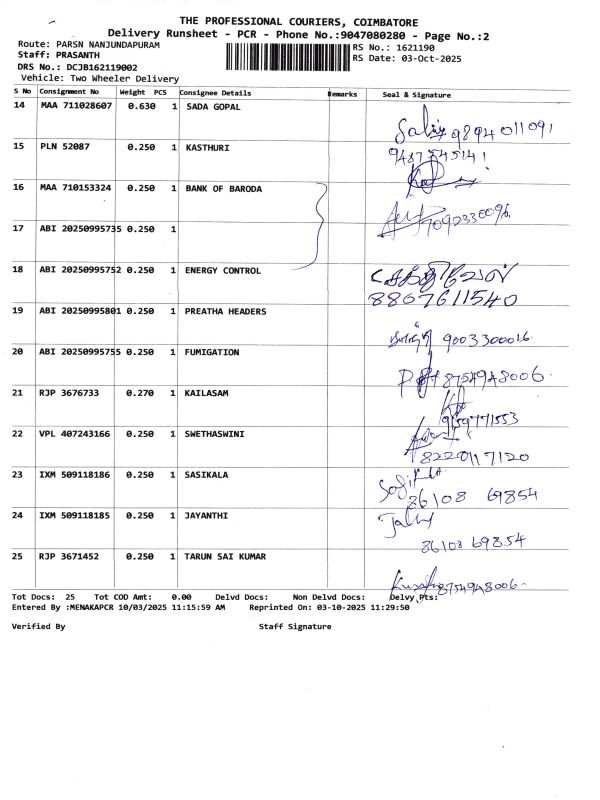 THE PROFESSIONAL COURIERS, COIMBATORE
Delivery Runsheet - PCR - Phone No.:9047080280 - Page No.:2
Route: PARSN NANJUNDAPURAM
RS No.: 1621190
Staff: PRASANTH
RS Date: 03-Oct-2025
DRS No.: DCJB162119002
Vehicle: Two Wheeler Delivery
S No Consignment No Weight PCS Consignee Details Remarks Seal & Signature
14 MAA 711028607 0.630 1 SADA GOPAL
9894011091
15 PLN 52087 0.250 1 KASTHURI
16 MAA 710153324 0.250 1 BANK OF BARODA
7092330096
17 ABI 20250995735 0.250 1
18 ABI 20250995752 0.250 1 ENERGY CONTROL
8867611540
19 ABI 20250995801 0.250 1 PREATHA HEADERS
9003300016
20 ABI 20250995755 0.250 1 FUMIGATION
8754948006
21 RJP 3676733 0.270 1 KAILASAM
9159771553
22 VPL 407243166 0.250 1 SWETHASWINI
8220117120
23 IXM 509118186 0.250 1 SASIKALA
86108 69854
24 IXM 509118185 0.250 1 JAYANTHI
86108 69854
25 RJP 3671452 0.250 1 TARUN SAI KUMAR
8754948006
Tot Docs: 25 Tot COD Amt: 0.00 Delvd Docs: Non Delvd Docs: Delvy Pts:
Entered By :MENAKAPCR 10/03/2025 11:15:59 AM Reprinted On: 03-10-2025 11:29:50
Verified By Staff Signature